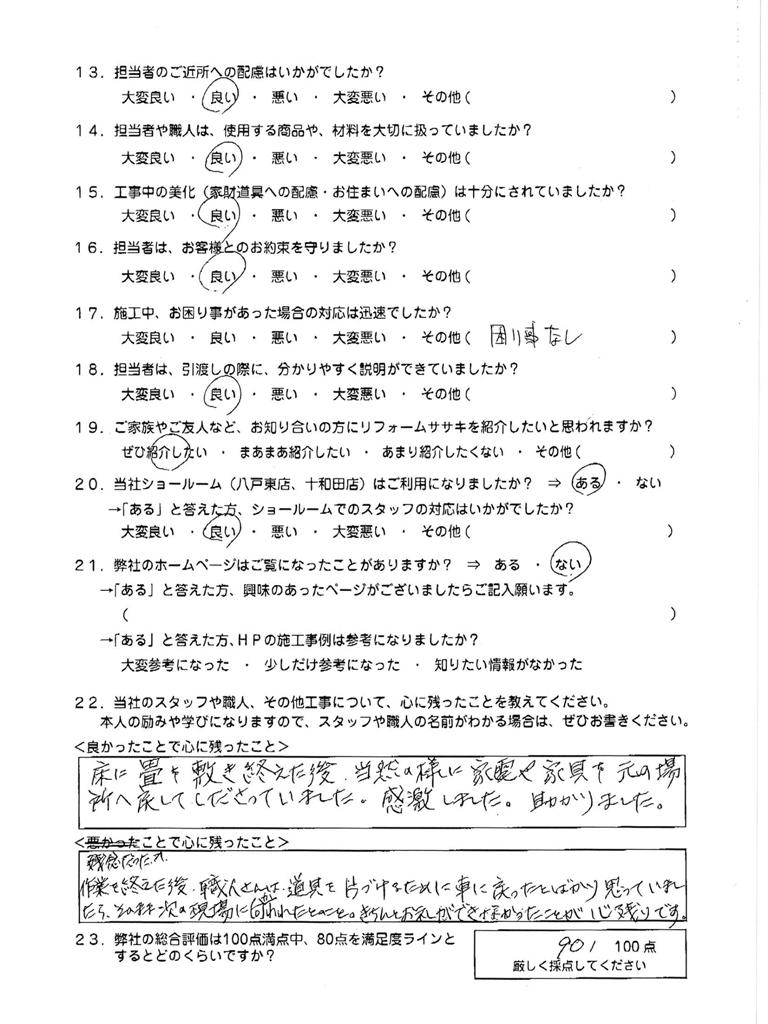 13．担当者のご近所への配慮はいかがでしたか？
大変良い ・ 良い ・ 悪い ・ 大変悪い ・ その他（ ）
14．担当者や職人は、使用する商品や、材料を大切に扱っていましたか？
大変良い ・ 良い ・ 悪い ・ 大変悪い ・ その他（ ）
15．工事中の美化（家財道具への配慮・お住まいへの配慮）は十分にされていましたか？
大変良い ・ 良い ・ 悪い ・ 大変悪い ・ その他（ ）
16．担当者は、お客様とのお約束を守りましたか？
大変良い ・ 良い ・ 悪い ・ 大変悪い ・ その他（ ）
17．施工中、お困り事があった場合の対応は迅速でしたか？
大変良い ・ 良い ・ 悪い ・ 大変悪い ・ その他（ 困り事なし ）
18．担当者は、引渡しの際に、分かりやすく説明ができていましたか？
大変良い ・ 良い ・ 悪い ・ 大変悪い ・ その他（ ）
19．ご家族やご友人など、お知り合いの方にリフォームササキを紹介したいと思われますか？
ぜひ紹介したい ・ まあまあ紹介したい ・ あまり紹介したくない ・ その他（ ）
20．当社ショールーム（八戸東店、十和田店）はご利用になりましたか？ ⇒ ある ・ ない
→「ある」と答えた方、ショールームでのスタッフの対応はいかがでしたか？
大変良い ・ 良い ・ 悪い ・ 大変悪い ・ その他（ ）
21．弊社のホームページはご覧になったことがありますか？ ⇒ ある ・ ない
→「ある」と答えた方、興味のあったページがございましたらご記入願います。
（ ）
→「ある」と答えた方、HPの施工事例は参考になりましたか？
大変参考になった ・ 少しだけ参考になった ・ 知りたい情報がなかった
22．当社のスタッフや職人、その他工事について、心に残ったことを教えてください。
本人の励みや学びになりますので、スタッフや職人の名前がわかる場合は、ぜひお書きください。
＜良かったことで心に残ったこと＞
床に畳を敷き終えた後、当然の様に家電や家具を元の場
所へ戻してくださっていました。感激しました。助かりました。
＜悪かったことで心に残ったこと＞
残念だった
作業を終えた後、職人さんは道具を片づけるために車に戻ったとばかり思っていまし
たら、そのまま次の現場に行かれたとのこと。きちんとお礼ができなかったことが心残りです。
23．弊社の総合評価は100点満点中、80点を満足度ラインと
するとどのくらいですか？
90/ 100点
厳しく採点してください